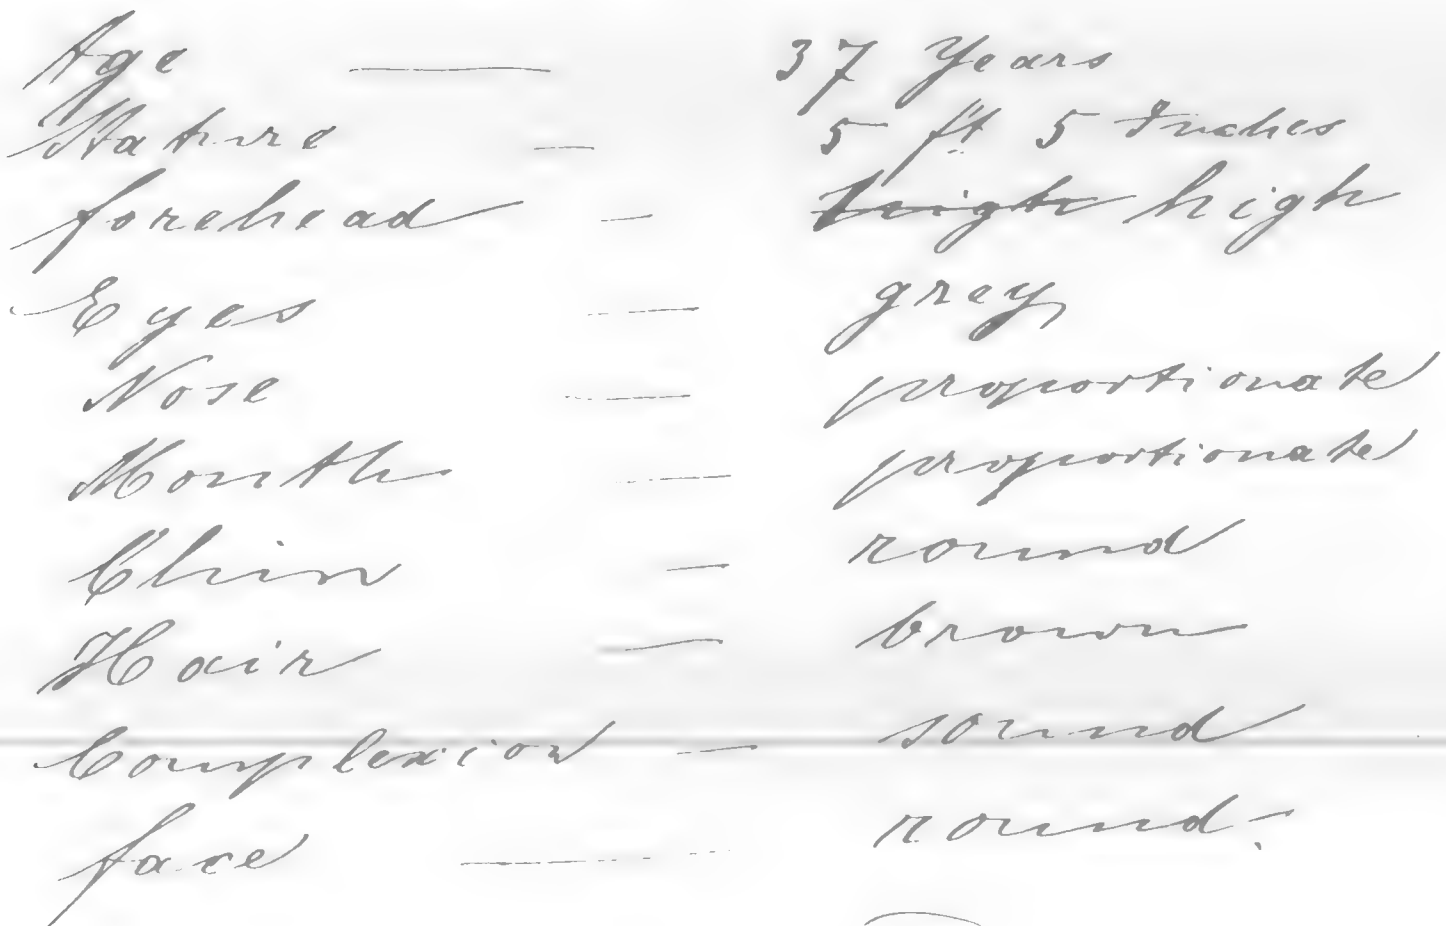 Age — 37 Years
Stature — 5 ft 5 Inches
forehead — high high
Eyes — grey
Nose — proportionate
Mouth — proportionate
Chin — round
Hair — brown
Complexion — sound
face — round -